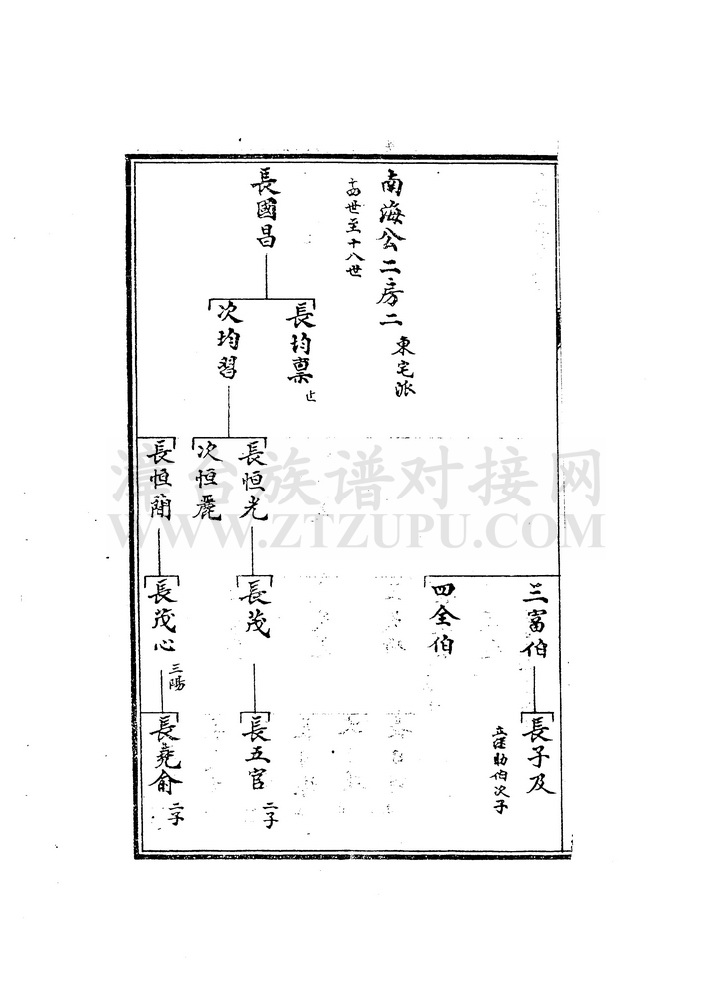 南海公二房二
東宅派
十四世至十八世
長國昌
長均禀
止
次均習
長恒光
次恒麗
長恒蘭
三富伯
四全伯
長茂
長茂心
三陽
長子及
次子
長五官
二子
長堯俞
二子
津台族谱对接网
WWW.ZTZUPU.COM